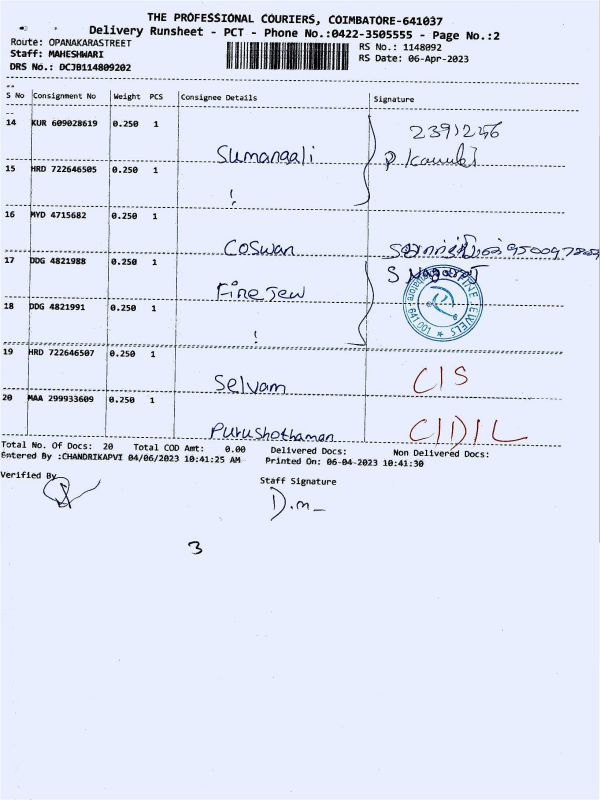 THE PROFESSIONAL COURIERS, COIMBATORE-641037
Delivery Runsheet - PCT - Phone No.:0422-3505555 - Page No.:2
Route: OPANAKARASTREET
Staff: MAHESHWARI
DRS No.: DCJB114809202
RS No.: 1148092
RS Date: 06-Apr-2023
S No Consignment No Weight PCS Consignee Details Signature
14 KUR 609028619 0.250 1
2391256
Sumangali
15 HRD 722646505 0.250 1
16 MYD 4715682 0.250 1
Coswan
17 DDG 4821988 0.250 1
Fine Jew
S Nagaraj
18 DDG 4821991 0.250 1
641 001 * FINE JEWELS
19 HRD 722646507 0.250 1
Selvam C/S
20 MAA 299933609 0.250 1
Purushothaman C/D/L
Total No. Of Docs: 20 Total COD Amt: 0.00 Delivered Docs: Non Delivered Docs:
Entered By :CHANDRIKAPVI 04/06/2023 10:41:25 AM Printed On: 06-04-2023 10:41:30
Verified By
Staff Signature
D.m
3